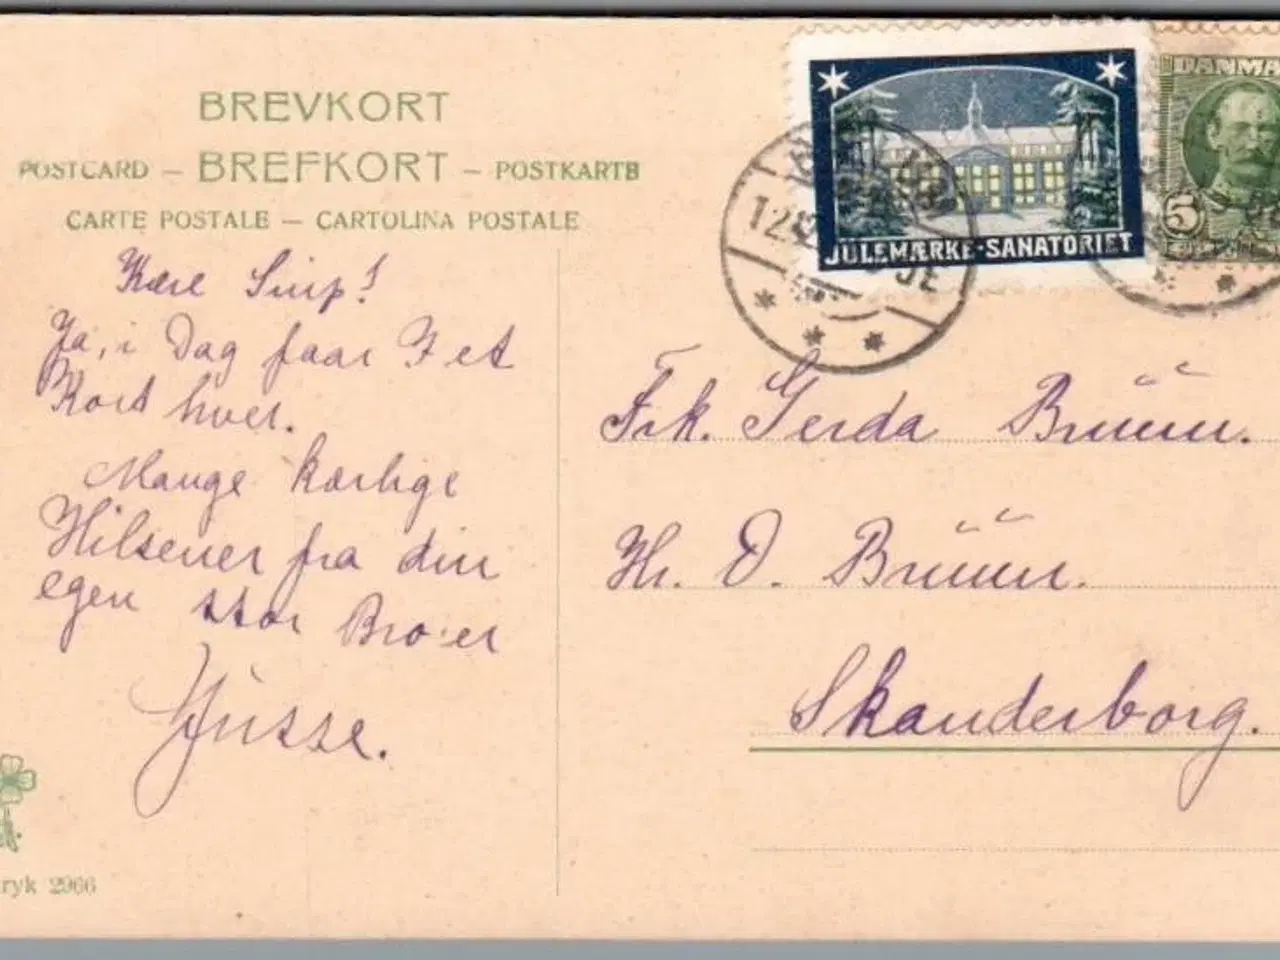 BREVKORT
POSTCARD — BREFKORT — POSTKARTE
CARTE POSTALE — CARTOLINA POSTALE
Kære Snip!
Ja, i Dag faar I et
Kort hver.
Mange kærlige
Hilsener fra din
egen stor Bro'er
ryk 2966
JULEMÆRKE-SANATORIET
DANMA
5
12
Frk. Gerda Bruun.
Hr. O. Bruun.
Skanderborg.